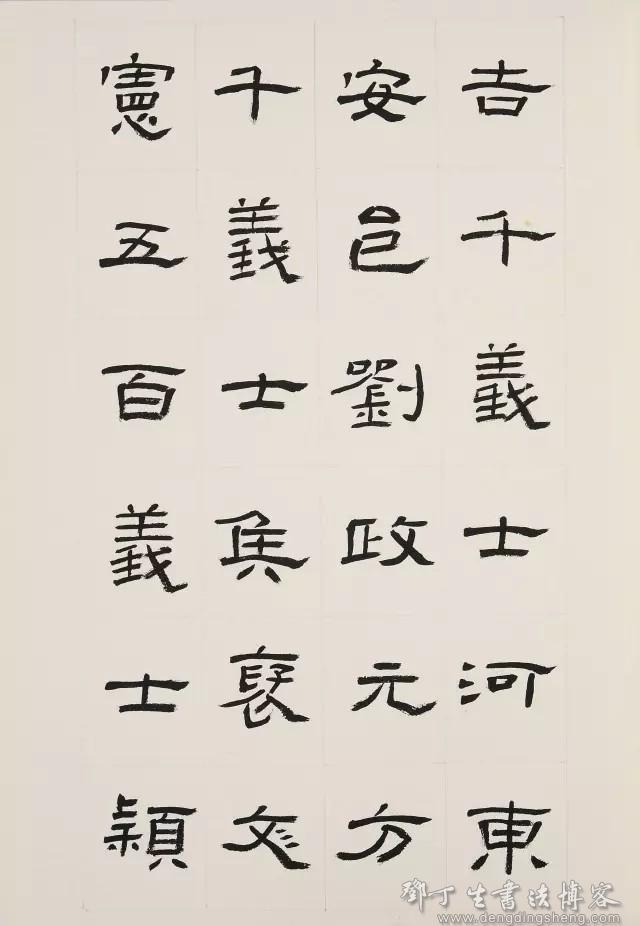 吉千義士河東
安邑劉政元方
千義士侯褒文
憲五百義士潁
鄧丁生書法博客
www.dengdingsheng.com